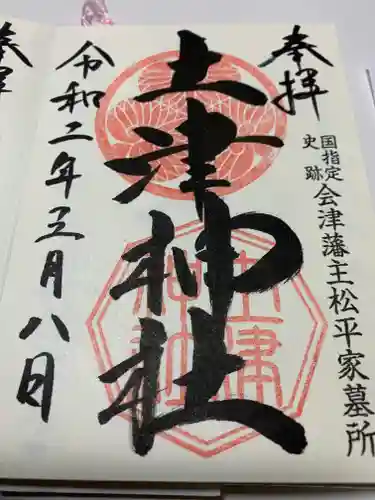 奉拝
国指定
史跡
会津藩主松平家墓所
土津神社
土津
神社
令和二年三月八日
奉拝